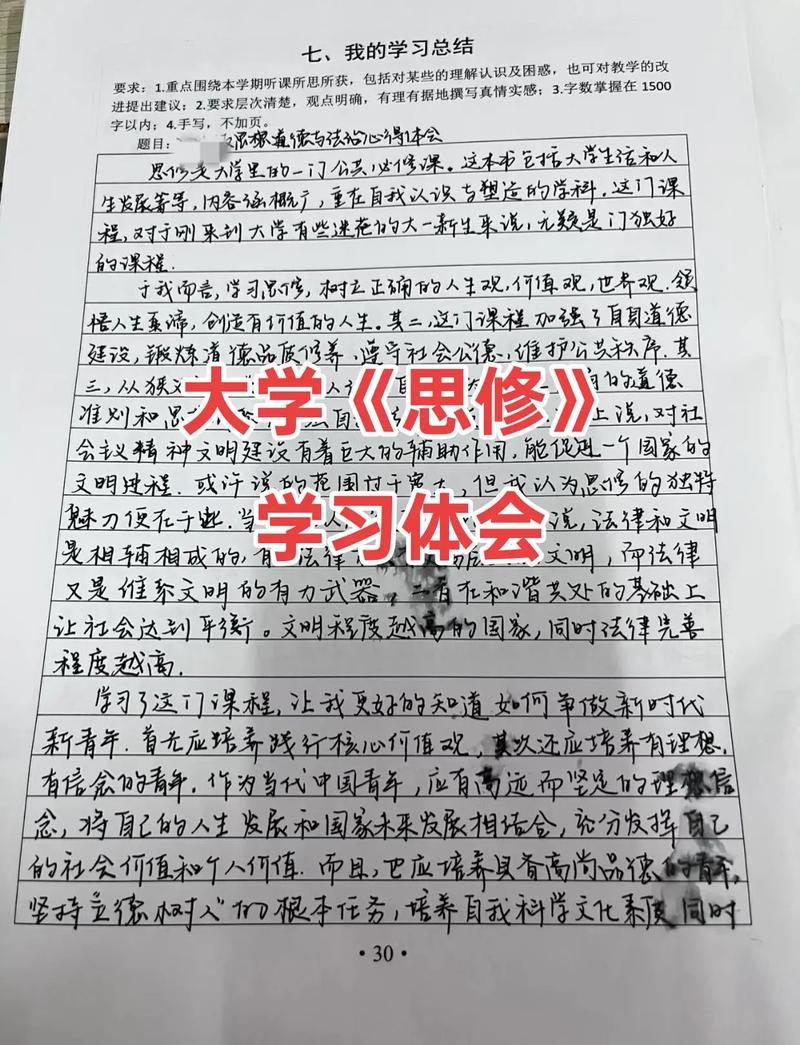 七、我的学习总结
要求：1.重点围绕本学期听课所思所获，包括对某些的理解认识及困惑，也可对教学的改
进提出建议；2.要求层次清楚，观点明确，有理有据地撰写真情实感；3.字数掌握在1500
字以内；4.手写，不加页。
题目：思想道德与法治心得体会
思修是大学里的一门公共必修课。这本书包括大学生活和人
生发展等等，内容涵概广，重在自我认识与塑造的学科。这门课
程，对于刚来到大学有些迷茫的大一新生来说，无疑是门独好
的课程.
于我而言，学习思修，树立正确的人生观，价值观，世界观.领
悟人生真谛，创造有价值的人生。其二，这门课程加强了自身道德
建设，锻炼道德品质修养，遵守社会公德，维护公共秩序.其
三，从狭 人 自 的道德
大学《思修》
准则和思 自 上说，对社
会主义精神文明建设有着巨大的辅助作用，能促进一个国家的
文明进程.或许说的范围过于宽大，但我认为思修的独特
魅力便在于此.当 人 说，法律和文明
学习体会
是相辅相成的，有 法律 文明，而法律
又是维系文明的有力武器，二者在和谐共处的基础上
让社会达到平衡。文明程度越高的国家，同时法律完善
程度越高.
学习了这门课程，让我更好的知道如何争做新时代
新青年.首先应培养践行核心价值观，其次还应培养有理想，
有信念的青年.作为当代中国青年，应有高远而坚定的理想信
念，将自己的人生发展和国家未来发展相结合，充分发挥自己
的社会价值和个人价值.而且，也应培养具备高尚品德的青年，
坚持立德树人的根本任务，培养自我科学文化素质同时
·30·